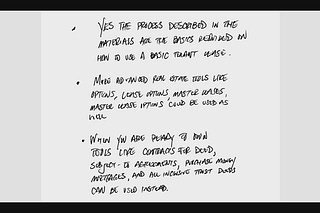 • YES THE PROCESS DESCRIBED IN THE
MATERIALS ARE THE BASICS REQUIRED ON
HOW TO USE A BASIC TENANT LEASE.
• MORE ADVANCED REAL ESTATE TOOLS LIKE
OPTIONS, LEASE OPTIONS, MASTER LEASES,
MASTER LEASE OPTIONS COULD BE USED AS
WELL
• WHEN YOU ARE READY TO OWN
TOOLS LIKE CONTRACTS FOR DEED,
SUBJECT-TO AGREEMENTS, PURCHASE MONEY
MORTGAGES, AND ALL INCLUSIVE TRUST DEEDS
CAN BE USED INSTEAD.